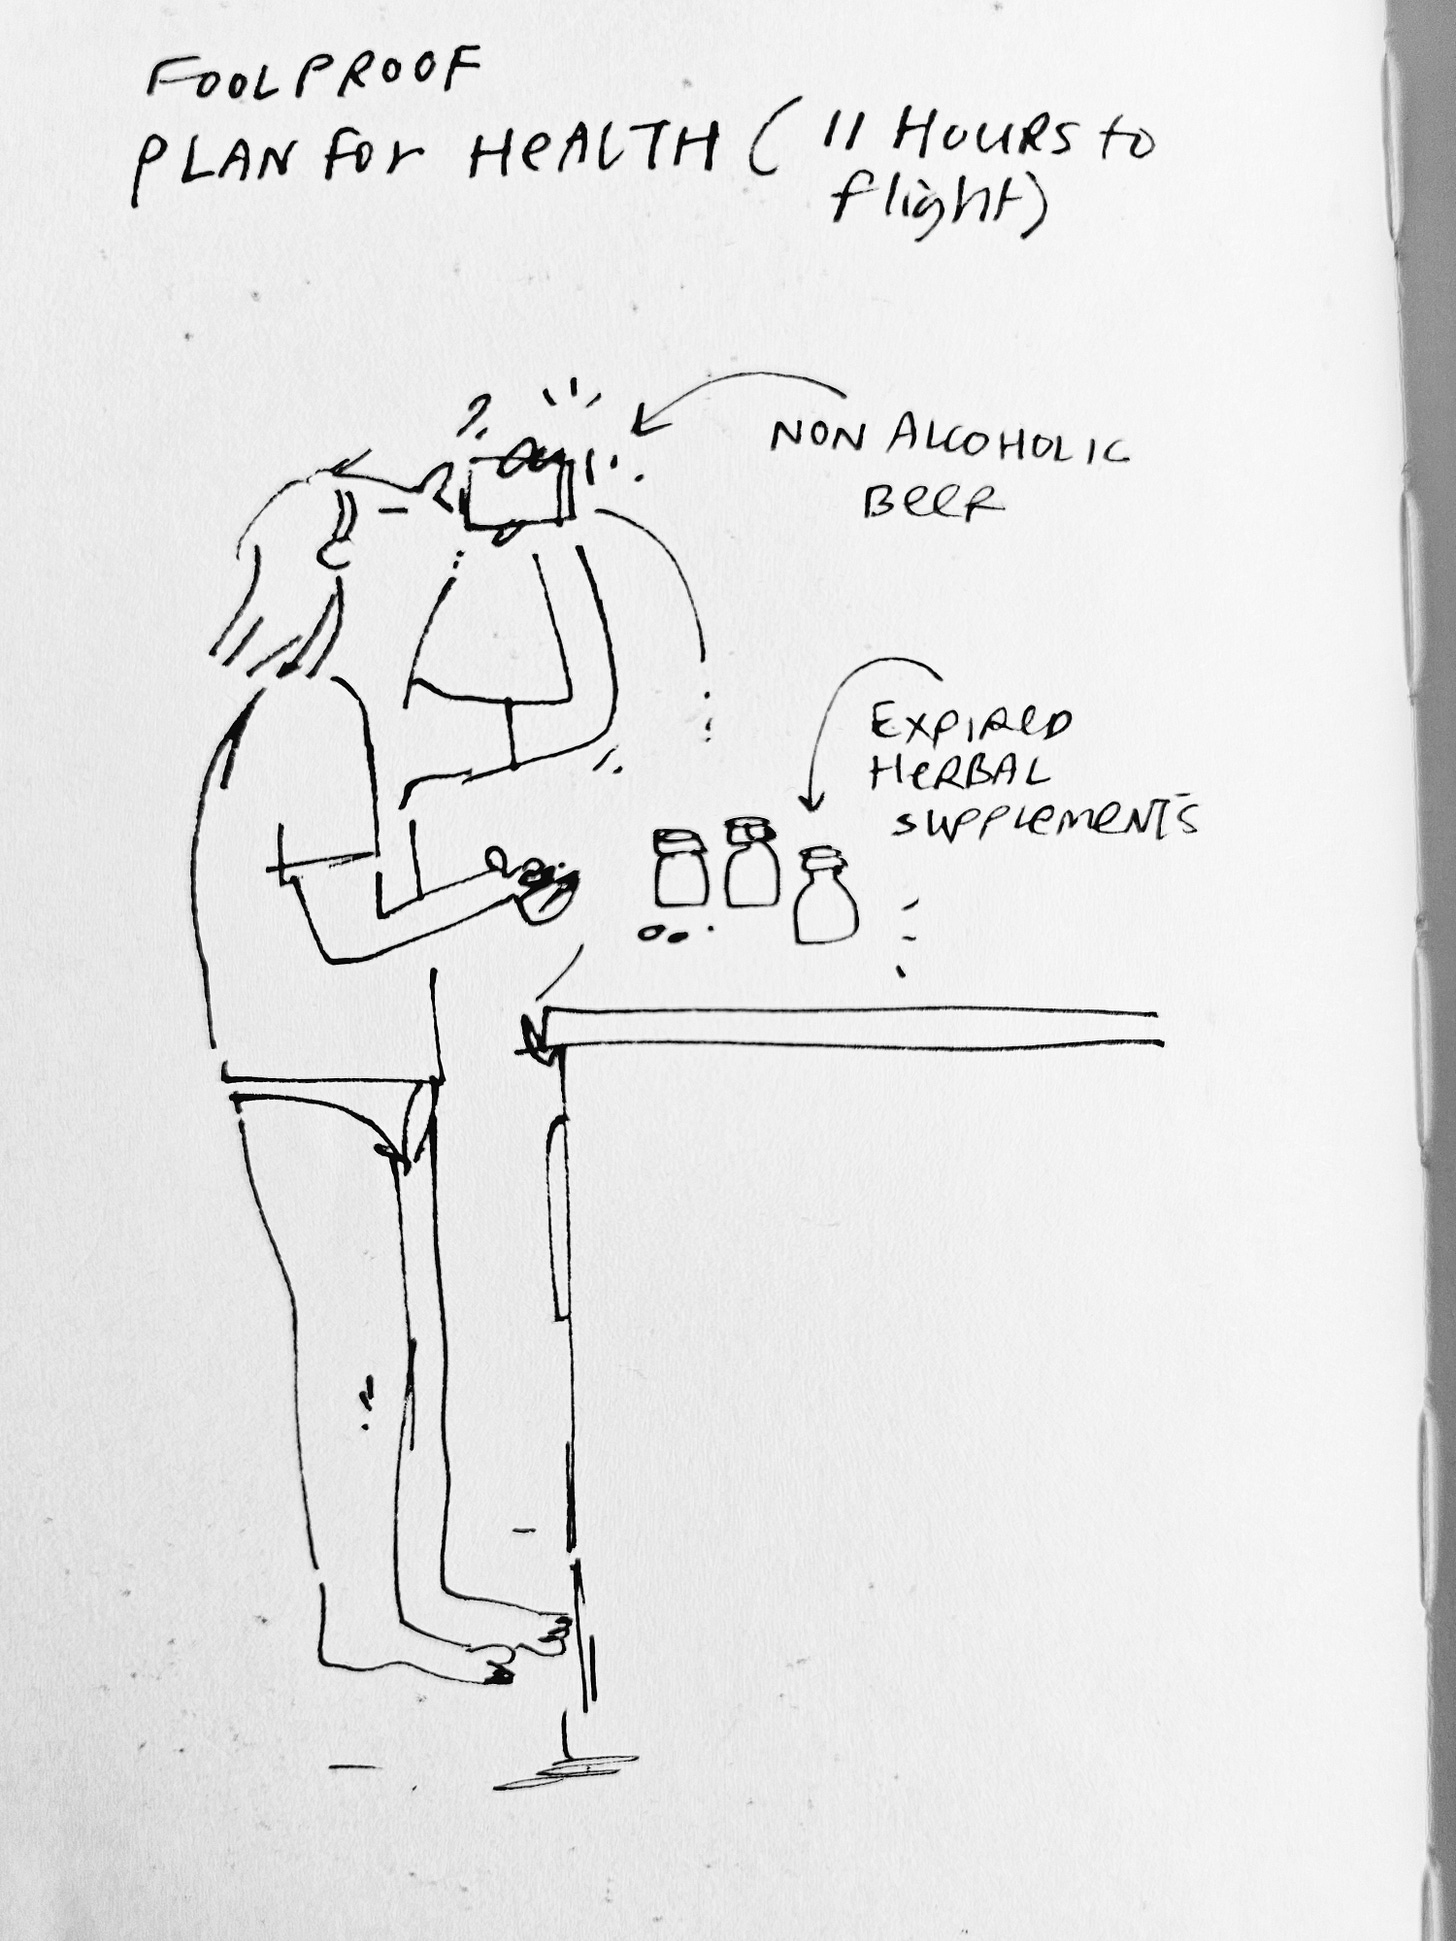 FOOLPROOF
PLAN FOR HEALTH (11 HOURS to
flight)
NON ALCOHOLIC
BEER
EXPIRED
HERBAL
SUPPLEMENTS